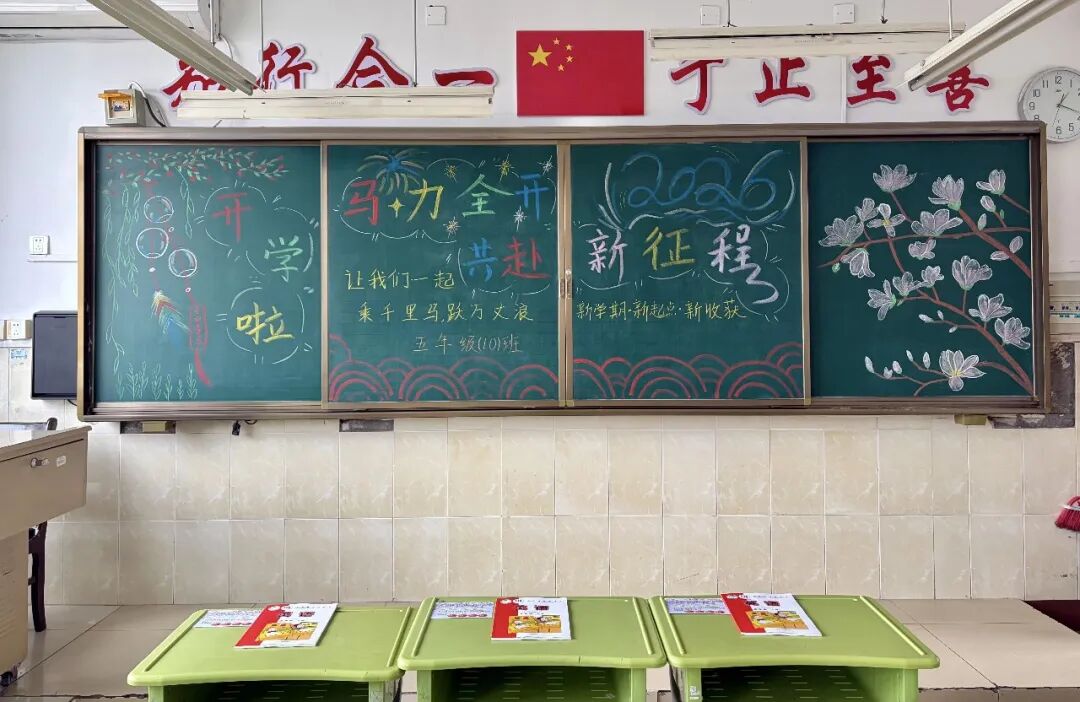 知行合一 止于至善
开
学
啦
马力全开
共赴
让我们一起
乘千里马,跃万丈浪
五年级(10)班
2026
新征程
新学期·新起点·新收获
12